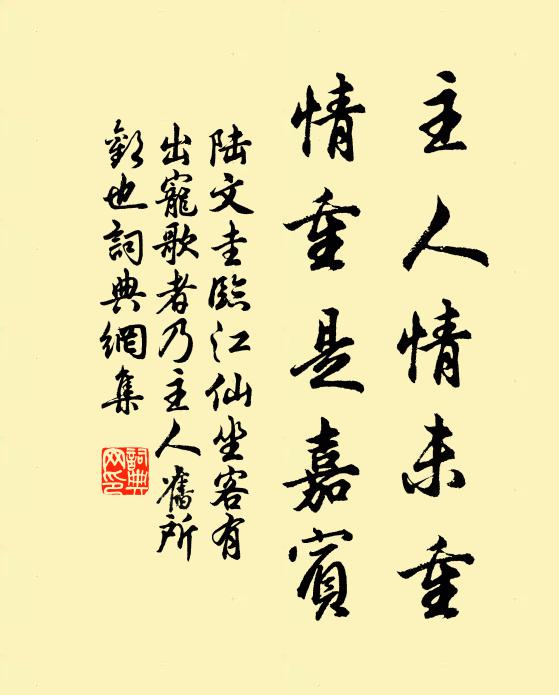 主人情未重
情重是嘉賓
陸文圭臨江仙坐客有
出寵歌者乃主人舊所
歡也詞典網集
詞典
网印